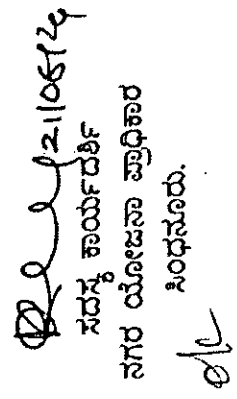 21/06/24
ಸದಸ್ಯ ಕಾರ್ಯದರ್ಶಿ
ನಗರ ಯೋಜನಾ ಪ್ರಾಧಿಕಾರ
ಸಿಂಧನೂರು.